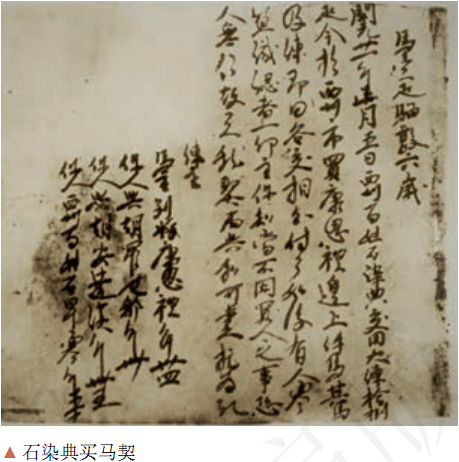 馬壹疋騮敦六歲
開元廿一年正月五日西州百姓石染典交用大練拾捌
疋今於西州市買康思禮邊上件馬其馬
及練即日各交相分付了如後有人寒
盜識認者一仰主保知當不關買人之事恐
人無信故立私契兩共和可畫指為記
練主
馬主別將康思禮年卅四
保人興胡羅也那年卌
保人興胡安達漢年卌五
保人西州百姓石早寒年五十
▲ 石染典买马契